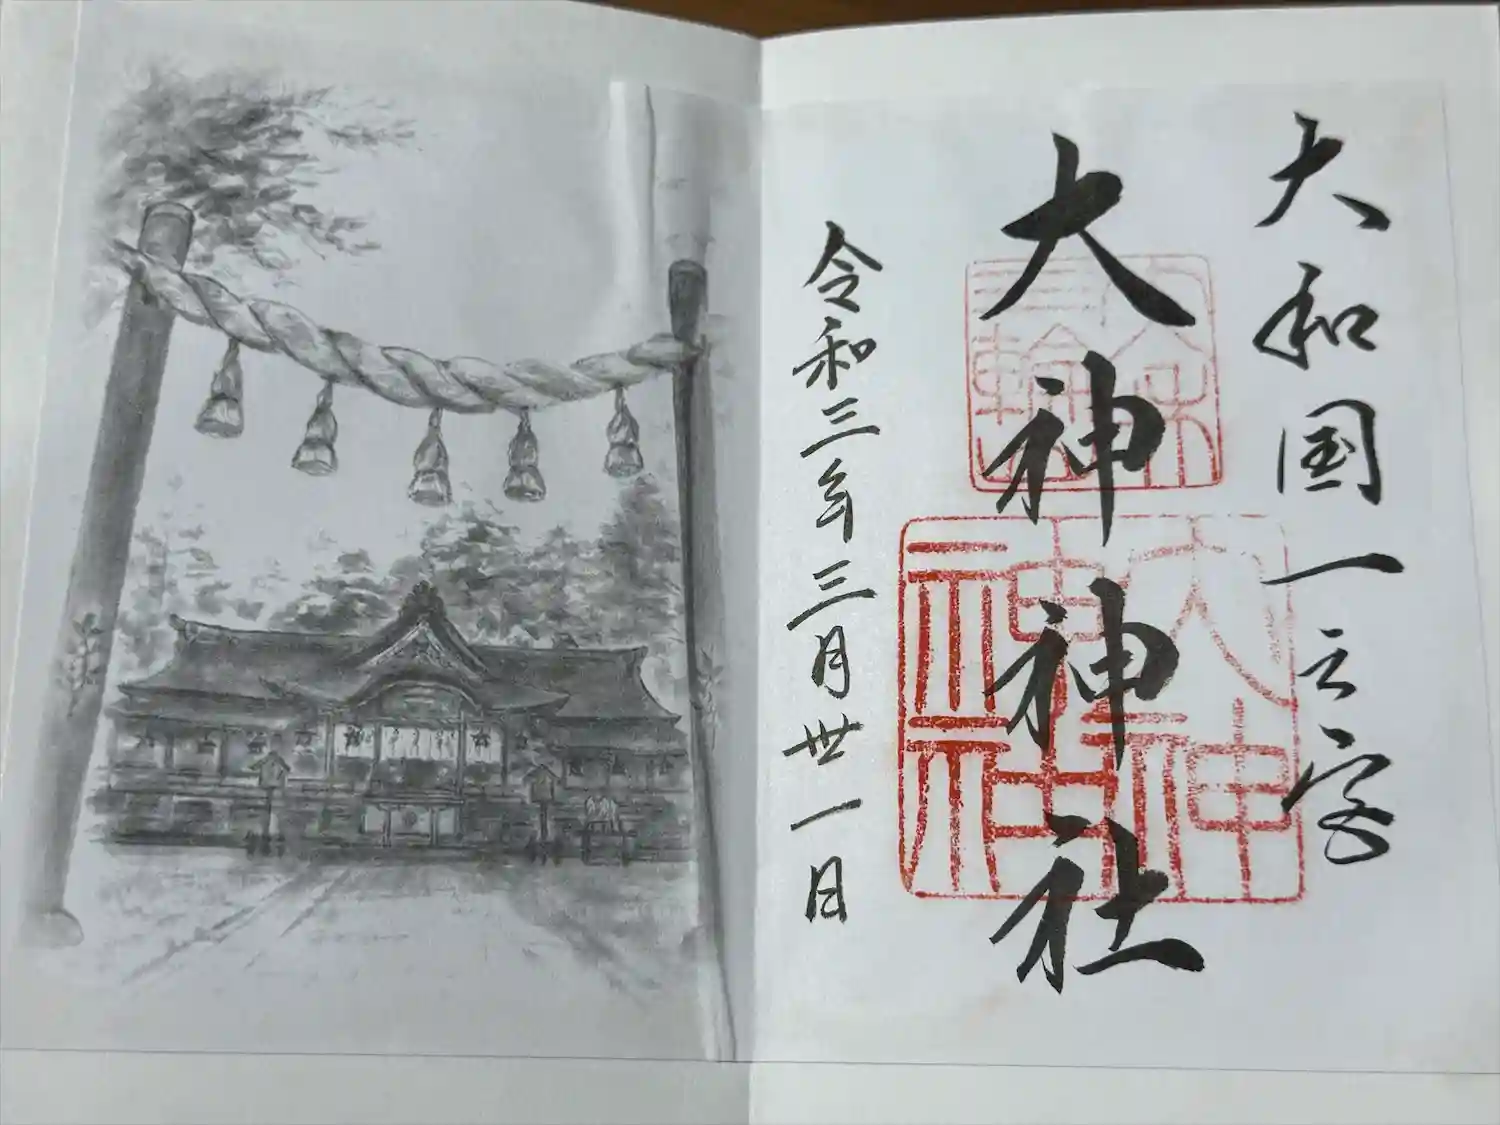 大和国一之宮
大神神社
大神
神社
令和三年三月丗一日